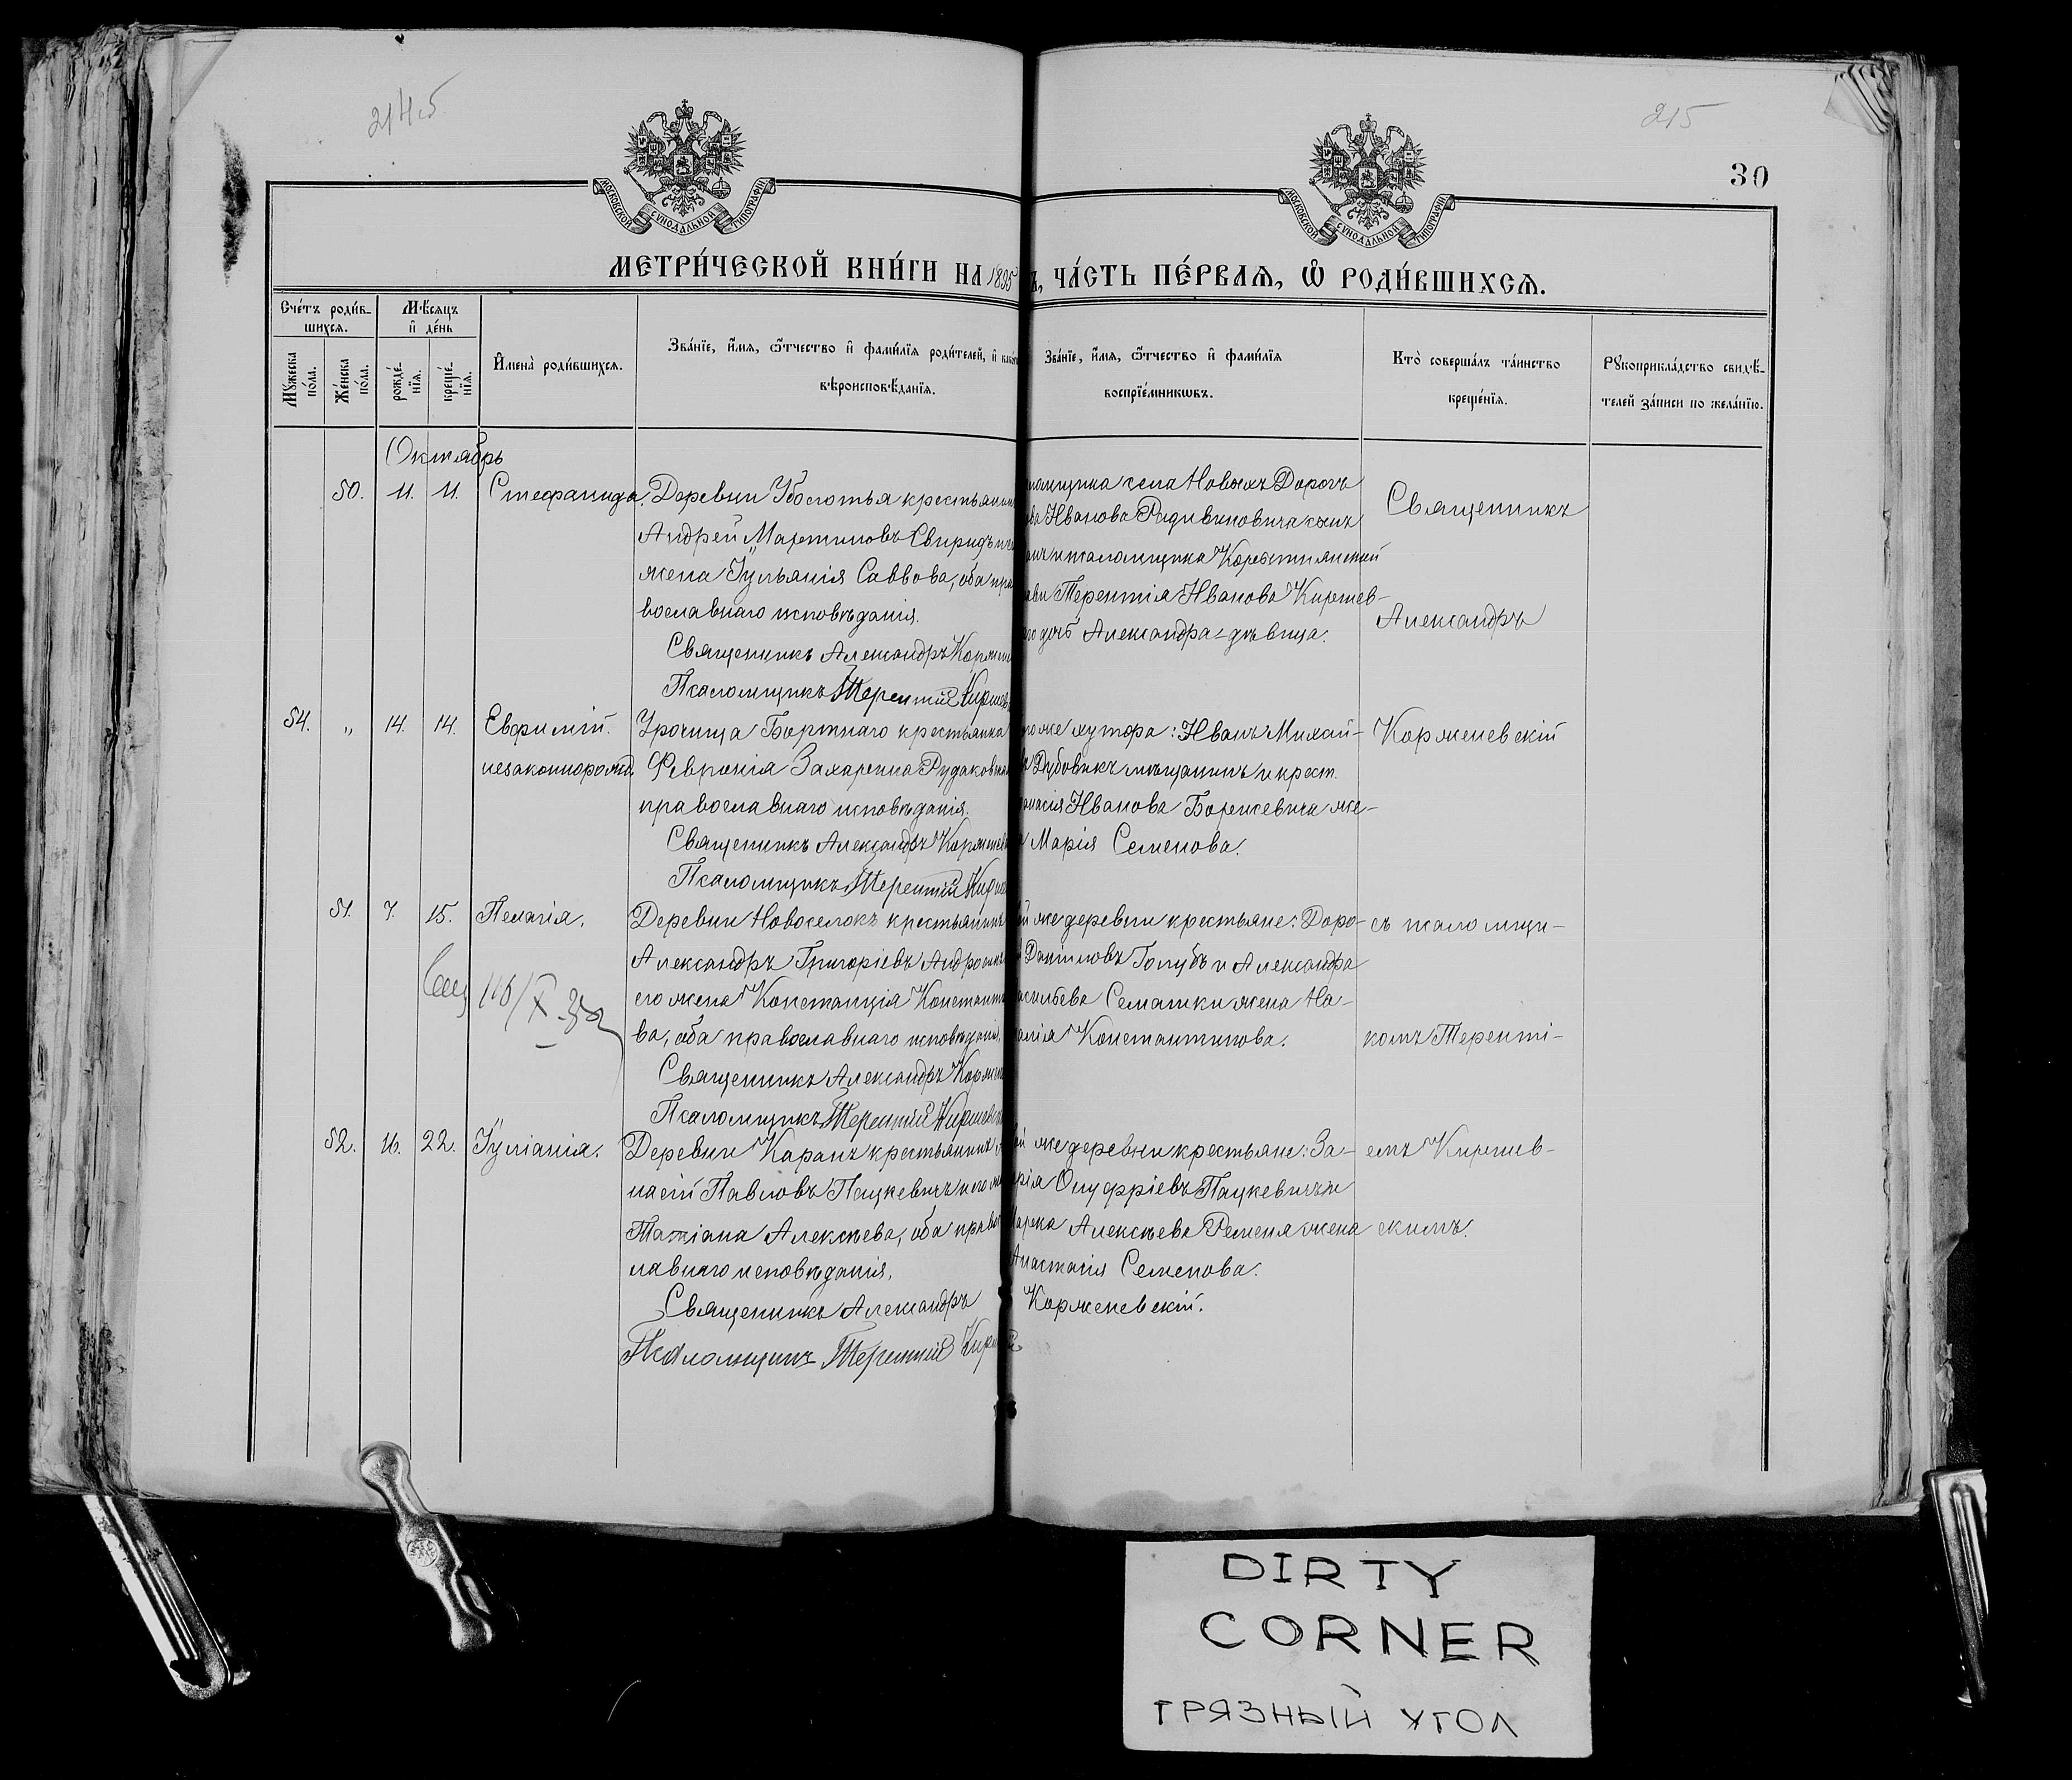 214об
215
30
МОСКОВСКОЙ СУНОДАЛЬНОЙ ТИПОГРАФІИ
МОСКОВСКОЙ СУНОДАЛЬНОЙ ТИПОГРАФІИ
МЕТРИ́ЧЕСКОЙ КНИ́ГИ НА 1895 Ъ, ЧА́СТЬ ПЕ́РВАѦ, Ѽ РОДИ́ВШИХСѦ.
Сче́тъ роди́в-
шихсѧ.
Мѣ́сяцъ
и҆ де́нь
Мꙋжеска по́ла.
Же́нска по́ла.
рожде́-
нїѧ.
креще́-
нїѧ.
И҆мена̀ роди́вшихсѧ.
Зва́нїе, и҆́мѧ, ѻ҆́тчество и҆ фами́лїѧ роди́телей, и҆
вѣроисповѣ́данїѧ.
Зва́нїе, и҆́мѧ, ѻ҆́тчество и҆ фами́лїѧ
воспрїе́мникѡвъ.
Кто̀ соверша́лъ та́инство
креще́нїѧ.
Рꙋкоприкла́дство свидѣ́-
телей за́писи по жела́нїю.
Октябрь
50. 11. 11. Стефанида. Деревни Уболотья крестьянинъ
Андрей Мартиновъ
жена Іульянія Саввова, оба пра
вославнаго исповѣданія.
Священникъ Александръ Корже
Псаломщикъ Терентій Киркев
ломщика села Новыхъ Дорогъ
Иванова Радивиновича
псаломщика
Терентія Иванова Киркев-
дочь Александра-дѣвица.
Священникъ
Александръ
54. „ 14. 14. Евфимій. Урочища Бортнаго крестьянка
незаконнорожд. Февронія Захарьина Рудаков
православнаго исповѣданія.
Священникъ Александръ Коржене
Псаломщикъ Терентій Кирк
же хутора: Иванъ Михай-
Дубовикъ мѣщанинъ и крест.
Иванова Борисевича же-
Марія Семенова.
Корженевскій
51. 7. 15. Пелагія. Деревни Новоселокъ крестьянинъ
Александръ Григоріевъ
его жена Констанція Константи
ва, оба православнаго исповѣданія.
Священникъ Александръ Корже
Псаломщикъ Терентій Киркев
й же деревни крестьяне: Доро-
Даніиловъ Голубъ и Александра
асильева Семашки жена На-
талія Константинова.
съ псаломщи-
комъ Теренті-
52. 16. 22. Іуліанія. Деревни Каранъ крестьянинъ
насій Павловъ Пацкевичъ и его ж
Татіана Алексѣева, оба правос
лавнаго исповѣданія.
Священникъ Александръ Корженевскій.
Псаломщикъ Терентій Кирк
й же деревни крестьяне: За-
харія Онуфріевъ Пацкевичъ и
Марка Алексѣева Ременя жена
Анастасія Семенова.
емъ Киркев-
скимъ.
DIRTY
CORNER
ГРЯЗНЫЙ УГОЛ